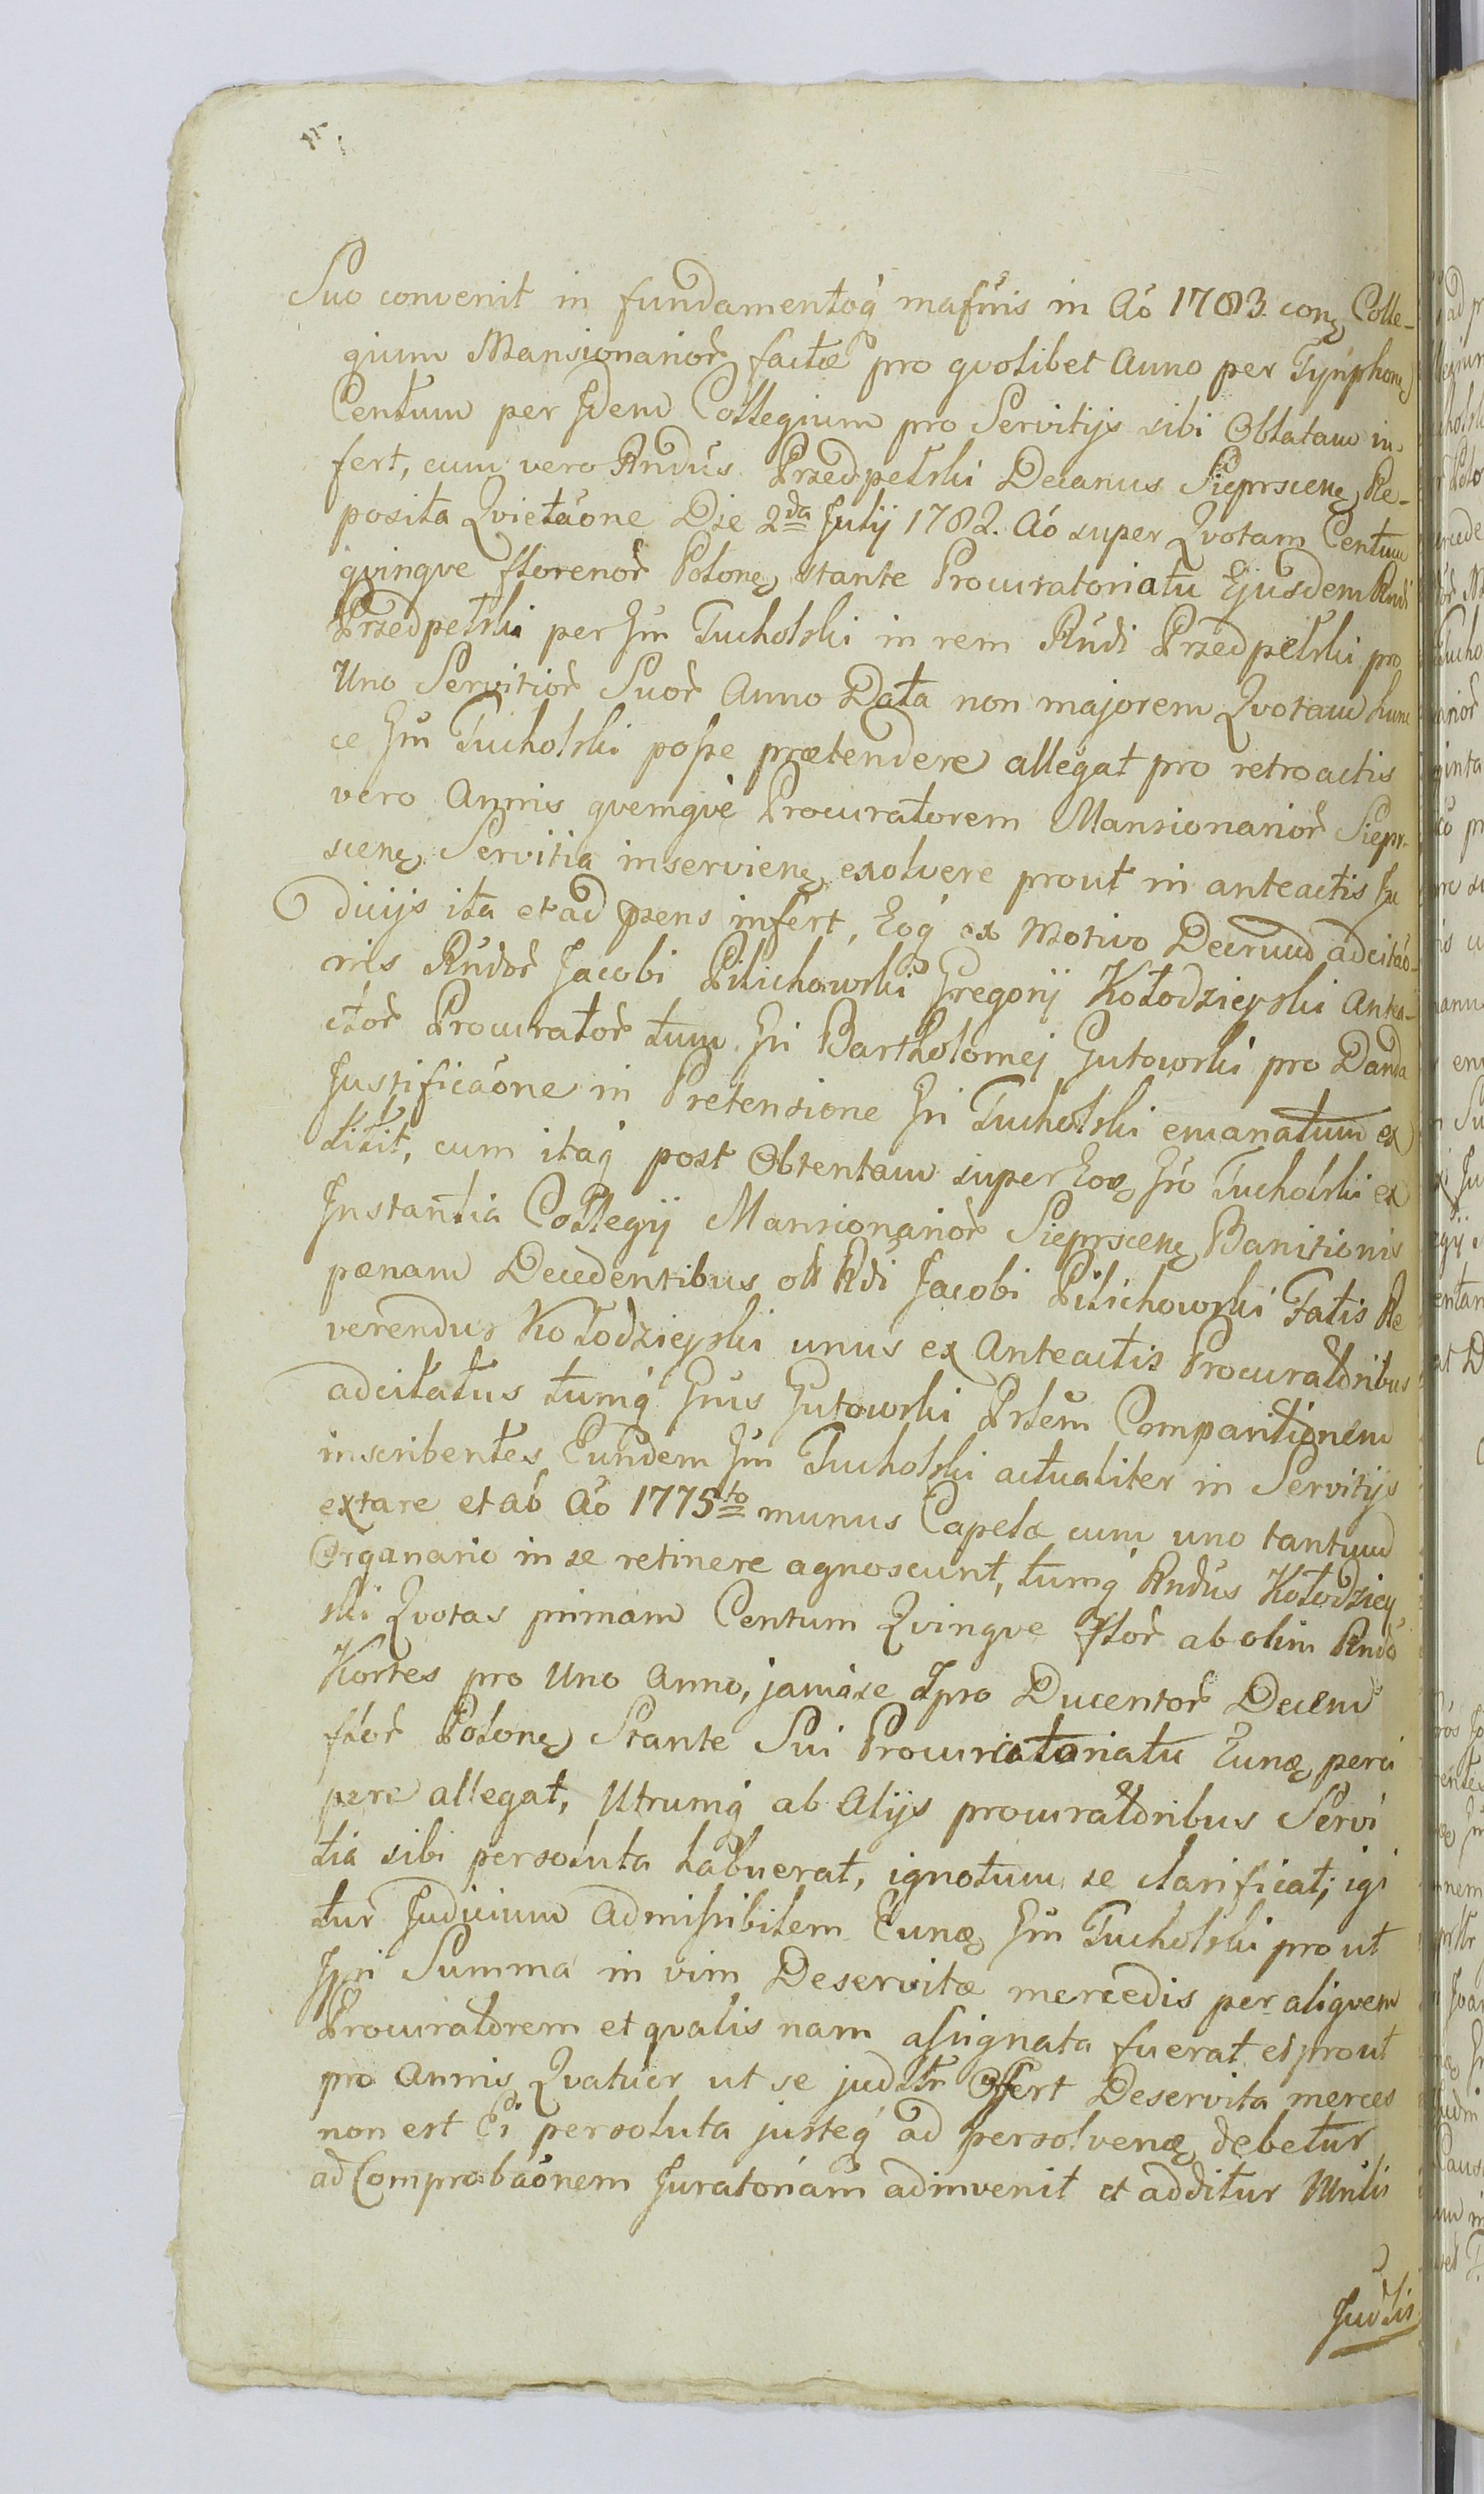 Suo convenit in fundamentoq́ in Aó 1783. conę Colle-
gium Mansionarioř factæ pro qvolibet Anno per Tynphonę
Centum per Idem Collegium pro Servitijs sibi Oblatam in-
fert, cum vero Rndus Przedpełski Decanus Sieprscenę Re-
posita Qvietaóne Die 2da Julij 1782. Aó super Qvotam Centum
qvinqve florenoř Polonę stante Procuratoriatu Ejusdem Rndi
Przedpełski per Jm Tucholski in rem Rndi Przedpełski pro
Uno Servitioř Suoř Anno Data non majorem Qvotam hunc
ce Jm Tucholski posse prætendere allegat pro retroactis
vero Annis qvemqvè Procuratorem Mansionarioř Siepr-
scenę Servitia inservienę exolvere prout in anteactis Ju
dicijs ita et ad præns infert, Eoq́ ex Motivo Decretum adcitáo-
nis Rndoř Jacobi Pilichowski Gregorij Kołodzieyski Antea-
ctoř Procuratoř tum Jni Bartholomej Gutowski pro Danda
Justificaóne in Pretensione Jni Tucholski emanatum ex
titit, cum itaq́ post Obtentam super Eoę Jno Tucholski ex
Instantia Collegij Mansionarioř Sieprscenę Banitionis
pænam Decedentibus olì Rdi Jacobi Pilichowski Fatis Re
verendus Kołodzieyski unus ex Anteactis Procuratoribus
adcitatus tumq́ Jnus Gutowski Prtem Comparitionem
inscribentes Eundem Jm Tucholski actualiter in Servitijs
extare et ab Aó 1775to munus Capelæ cum uno tantum
Organario in se retinere agnoscunt, tumq́ Rndus Kołodziey
ski Qvotas primam Centum Qvinqve floř ab olim Rndo
Kortes pro Uno Anno, jam a se pro Ducentoř Decem
floř Polonę Stante Sui Procuratoriatu Eunę perci
pere allegat, Utrumq́ ab Alijs procuratoribus Servi
tia sibi persoluta habuerat, ignotum se clarificat; igi
tur Judicium Admissibilem Eunę Jm Tucholski prout
Ipsi Summa in vim Deservitæ mercedis per aliqvem
Procuratorem et qvalis nam assignata fuerat et prout
pro Annis Qvatuor ut se judltr Offert Deservita merces
non est Ei persoluta justeq́ ad persolvenę debetur
ad Comprobaónem Juratoriam adinvenit et additur
Judlis